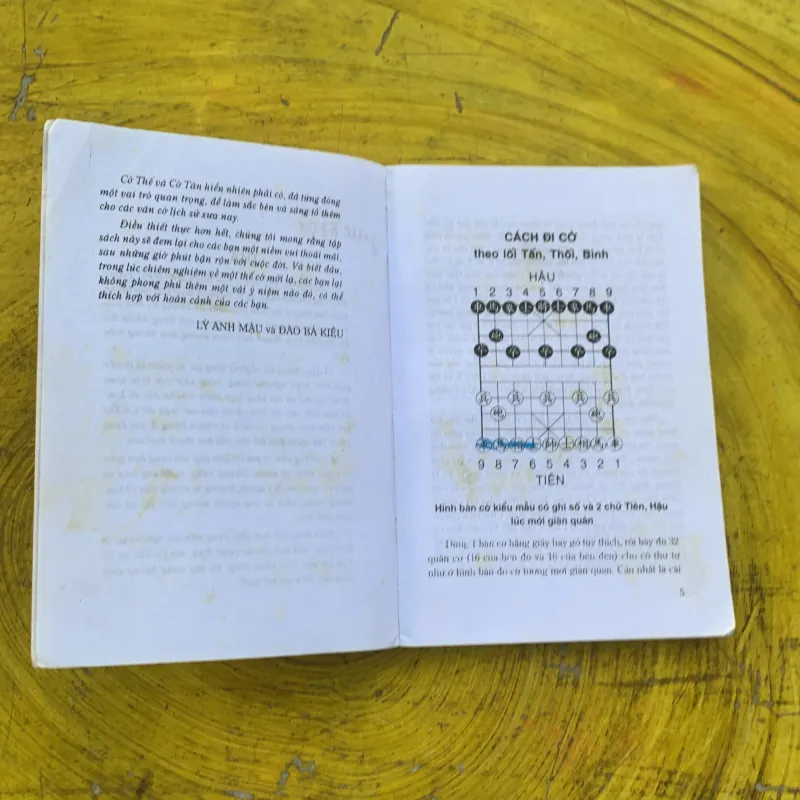 Cờ Thế và Cờ Tàn hiển nhiên phải có, đã từng đóng
một vai trò quan trọng, để làm sắc bén và sáng tỏ thêm
cho các ván cờ lịch sử xưa nay.
Điều thiết thực hơn hết, chúng tôi mong rằng tập
sách này sẽ đem lại cho các bạn một niềm vui thoải mái,
sau những giờ phút bận rộn với cuộc đời. Và biết đâu,
trong lúc chiêm nghiệm về một thế cờ mới lạ, các bạn lại
không phong phú thêm một vài ý niệm nào đó, có thể
thích hợp với hoàn cảnh của các bạn.
LÝ ANH MẬU và ĐÀO BÁ KIỀU
CÁCH ĐI CỜ
theo lối Tấn, Thối, Bình
HẬU
1 2 3 4 5 6 7 8 9
9 8 7 6 5 4 3 2 1
TIÊN
Hình bàn cờ kiểu mẫu có ghi số và 2 chữ Tiên, Hậu
lúc mới giàn quân
Dùng 1 bàn cờ bằng giấy hay gỗ tùy thích, rồi bày đủ 32
quân cờ (16 của bên đỏ và 16 của bên đen) cho có thứ tự
như ở hình bản đồ cờ tướng mới giàn quân. Cần nhất là cái
5